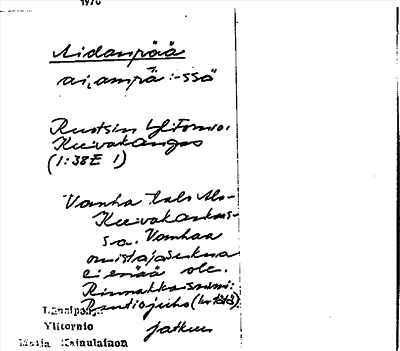 1970
Aidanpää
ai,ampä :-ssä
Ruotsin Ylitornio.
Keivakangas
(1:38E 1)
Vanha talo Ala-
Keivakankaas-
sa. Vanhaa
omistajasukua
ei enää ole.
Rinnakkaisnimi:
Rautiojuho (ks. tätä)
Länsipohja
Ylitornio
jatkuu
Matin Kainulainen